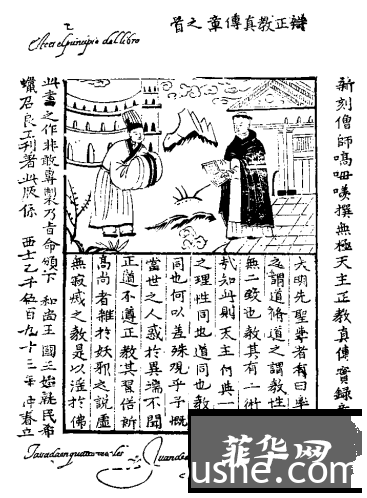 辯正教真傳章之首
el principio del libro
新刻僧師嗃呣撰無極天主正教真傳實錄章
大明先聖學者有曰率
之謂道脩道之謂教性
無二致也教其有二術
哉知此則天主何典一
之理性同也道同也教
同也何以差殊現乎予慨
當世之人惑於異端不聞
正道不遵正教其習俗所
高尚者雜於妖邪之說虛
無寂滅之教是以淫於佛
此書之作非敢專製乃旨命頒下和尚王國王始就民希
蠟召良工刊著此版係西士乙千伍百九十三年仲春立
Tasada en quatro reales
Juan de
菲华网
ushe.com